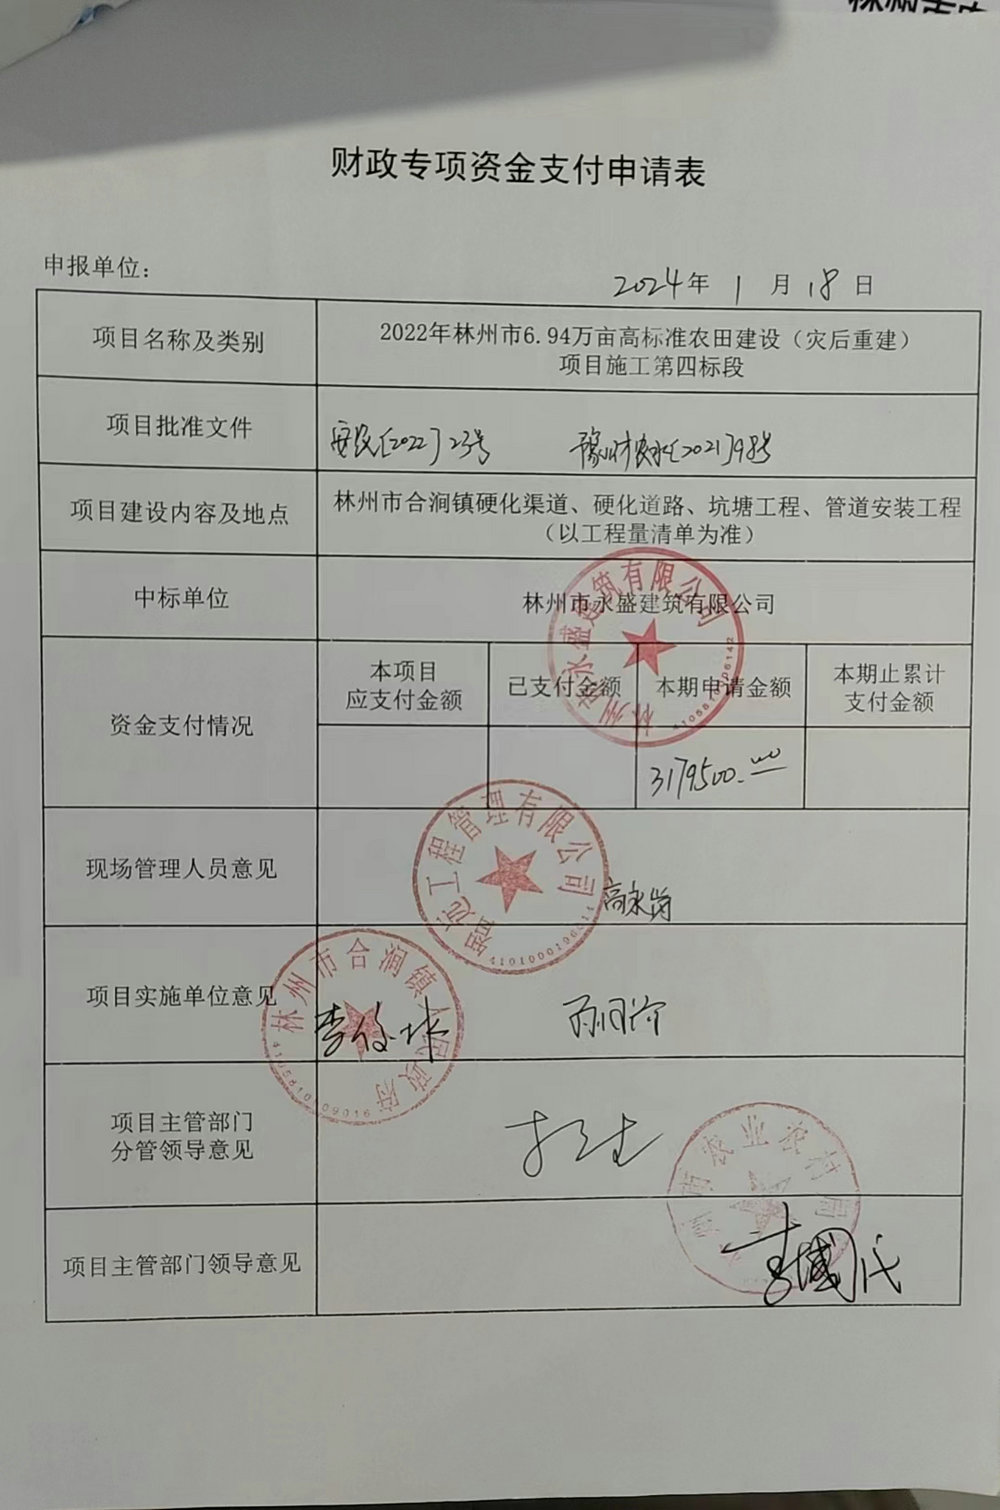 财政专项资金支付申请表
申报单位：
2024年 1 月 18 日
项目名称及类别
2022年林州市6.94万亩高标准农田建设（灾后重建）
项目施工第四标段
项目批准文件
安民〔2022〕23号 豫财农水〔2021〕98号
项目建设内容及地点
林州市合涧镇硬化渠道、硬化道路、坑塘工程、管道安装工程
（以工程量清单为准）
中标单位
林州市永盛建筑有限公司
林州市永盛建筑有限公司
资金支付情况
本项目
应支付金额
已支付金额
本期申请金额
本期止累计
支付金额
3179500.00
现场管理人员意见
智远工程管理有限公司
高永岗
项目实施单位意见
林州市合涧镇人民政府
项目主管部门
分管领导意见
市农业农村局
项目主管部门领导意见